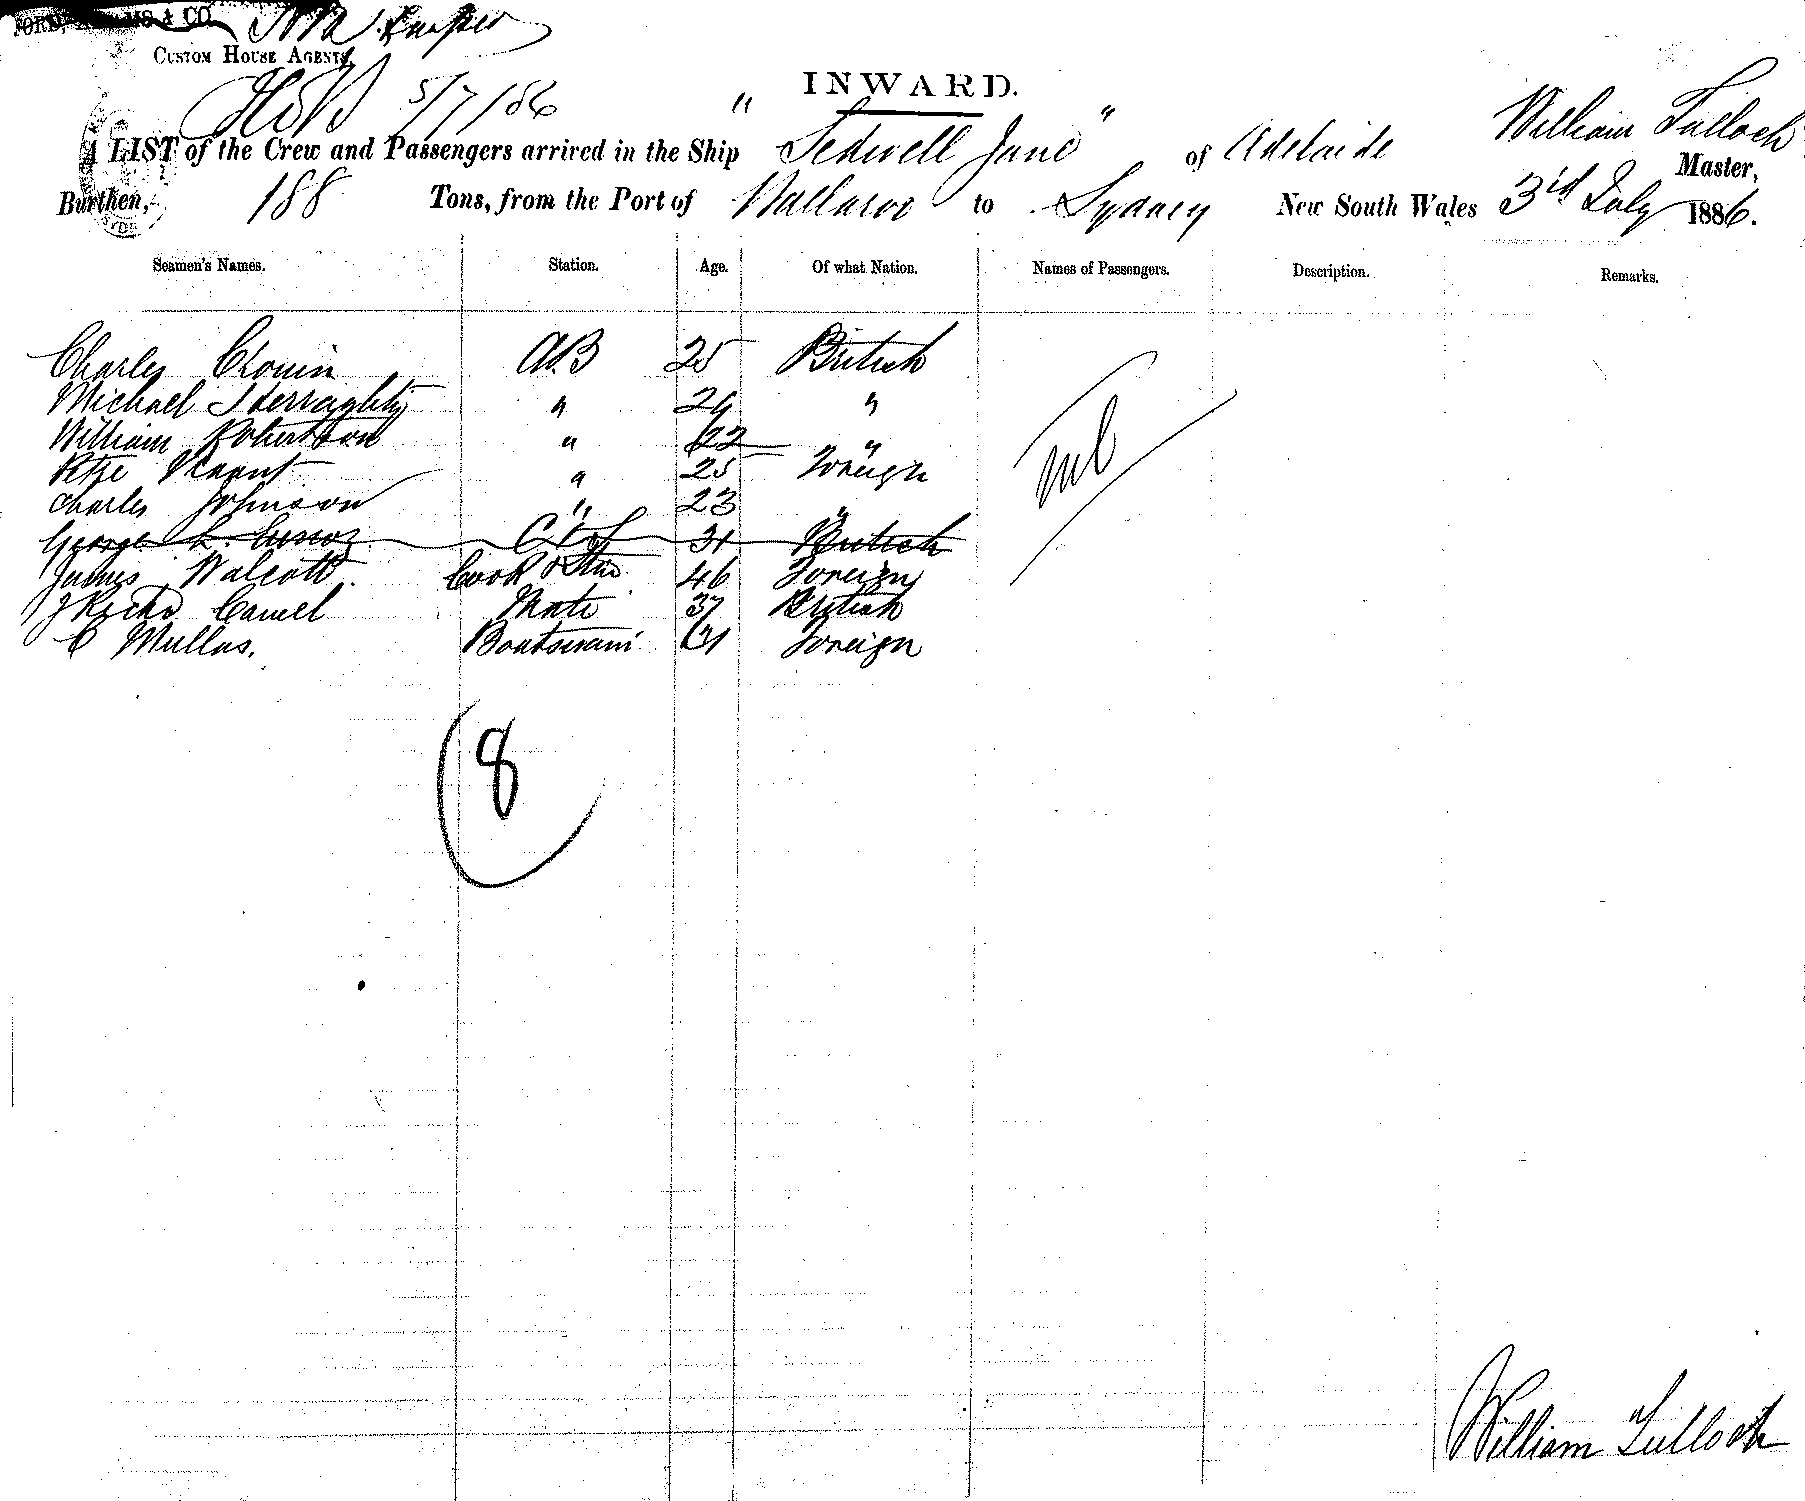 & CO.
CUSTOM HOUSE AGENTS,
5/7/86
INWARD.
A LIST of the Crew and Passengers arrived in the Ship "Sedwell Jane" of Adelaide William Tulloch Master,
Burthen, 188 Tons, from the Port of Wallaroo to Sydney New South Wales 3rd July 1886.
Seamen's Names. Station. Age. Of what Nation. Names of Passengers. Description. Remarks.
Charles Cronin AB 25 British
Michael " 29 "
William Robertson " 22 "
" 25 Foreign
Charles Johnson " 23 "
George L. 31 British
James Walcott Cook & Stw 46 Foreign
Mate 37 British
C Mullas. Boatswain 31 Foreign
Nil
8
William Tulloch